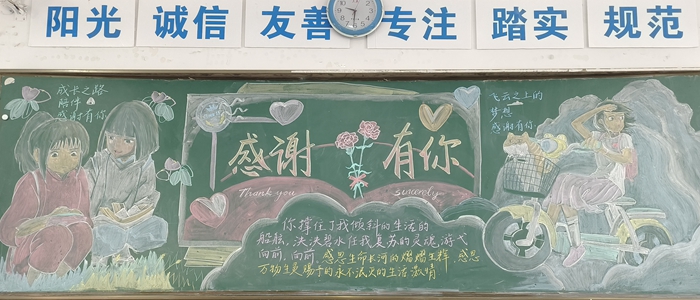 阳光 诚信 友善 专注 踏实 规范
成长之路
陪伴
感谢有你
飞云之上的
梦想
感谢有你
感谢 有你
Thank you sincerely
你撑住了我倾斜的生活的
船舷,泱泱碧水任我复苏的灵魂,游弋
向前,向前,感恩生命长河的熠熠生辉,感恩
万物生灵赐予的永不泯灭的生活激情